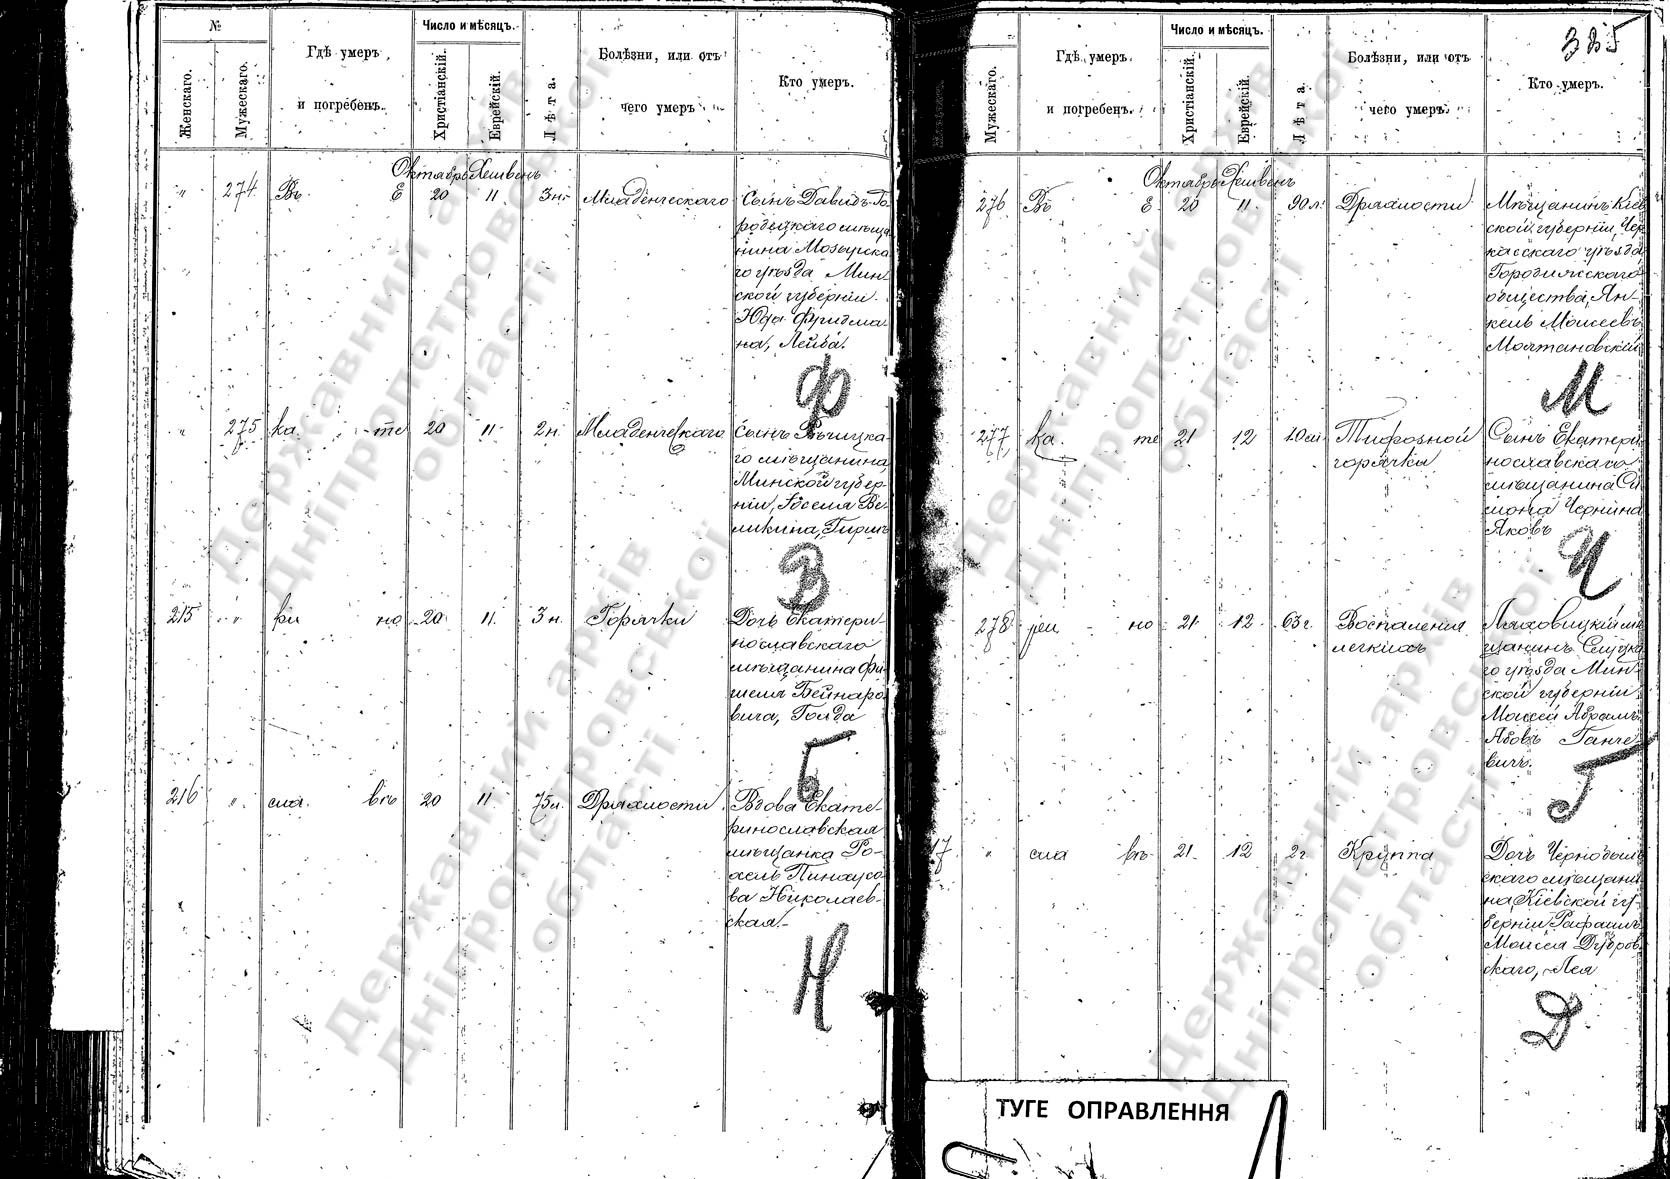 №
Женскаго.
Мужескаго.
Гдѣ умеръ
и погребенъ.
Число и мѣсяцъ.
Христіанскій.
Еврейскій.
Лѣта.
Болѣзни, или отъ
чего умеръ
Кто умеръ.
Октябрь Хешвенъ
" 274 Въ Е 20 11 3 н. Младенческаго Сынъ Давидъ-Го-
родецкаго мѣща-
нина Мозырска-
го уѣзда Мин-
ской губерніи
Юда Фридма-
на, Лейба.
Ф
" 275 ка те 20 11 2 н. Младенческаго Сынъ Рѣчицка-
го мѣщанина
Минской губер-
ніи, Іоселя Ве-
ликина, Гиршъ
В
215 " ри но 20 11 3 н. Горячки Дочь Екатери-
нославскаго
мѣщанина Фи-
шеля Бейнаро-
вича, Голда
Б
216 " сла вѣ 20 11 75 л. Дряхлости Вдова Екате-
ринославская
мѣщанка Ро-
хель Пинхусо-
ва Николаев-
ская.
Н
325
Мужескаго.
Гдѣ умеръ
и погребенъ.
Число и мѣсяцъ.
Христіанскій.
Еврейскій.
Лѣта.
Болѣзни, или отъ
чего умеръ.
Кто умеръ.
Октябрь Хешвенъ
276 Въ Е 20 11 90 л. Дряхлости Мѣщанинъ Кіев-
ской губерніи, Чер-
касскаго уѣзда
Городищскаго
общества, Ян-
кель Моисеевъ
Молтановскій
М
277 ка те 21 12 10 м Тифозной Сынъ Екатери-
горячки нославскаго
мѣщанина Си-
мона Чернина
Яковъ
Ч
278 ри но 21 12 63 г. Воспаленія Ляховицкій мѣ-
легкихъ щанинъ Слуцка-
го уѣзда Мин-
ской губерніи
Моисей Абрамъ
Абовъ Ганче-
вичъ.
Г
17 " сла вѣ 21 12 2 г. Круппа Дочь Чернобыль-
скаго мѣщани-
на Кіевской гу-
берніи Рафаилъ
Моисея Дубров-
скаго, Лея
Д
ТУГЕ ОПРАВЛЕННЯ
Державний архів
Дніпропетровської
області